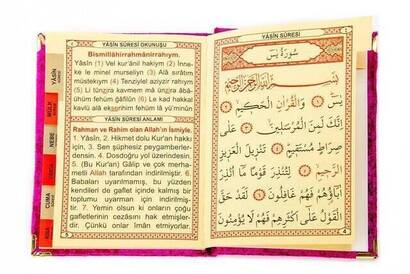 YÂSÎN SÛRESİ OKUNUŞU
Bismillâhirrahmânirrahîym.
Yâsîn (1) Vel kur'ânil hakiym (2) İnne-
ke le minel murseliyn (3) Alâ sırâtım
müstekıym (4) Tenziylel aziyzir rahıym
(5) Li tünzira kavmen mâ ünzira âbâ-
ühum fehüm ğâfilûn (6) Le kad hakkal
kavlü alâ ekserihim fehüm lâ yü'minûn
YÂSÎN SÛRESİ ANLAMI
Rahman ve Rahim olan Allah'ın İsmiyle.
1. Yâsîn, 2. Hikmet dolu Kur'an hakkı
için, 3. Sen şüphesiz peygamberler-
densin. 4. Dosdoğru yol üzerindesin.
5. (Bu Kur'an) Gâlip ve çok merha-
metli Allah tarafından indirilmiştir. 6.
Babaları uyarılmamış, bu yüzden
kendileri de gaflet içinde kalmış bir
toplumu uyarman için indirilmiş-
tir. 7. Yemin olsun ki onların çoğu
gafletlerinin cezasını hak etmişler-
dir. Çünkü onlar îman etmiyorlar.
5
YÂSÎN
SÛRESİ
MÜLK
NEBE
CUMA
YÂSÎN SÛRESİ
سُورَةُ يٰسٓ
بِسْمِ اللّٰهِ الرَّحْمٰنِ الرَّحِيمِ
يٰسٓ ﴿١﴾ وَالْقُرْاٰنِ الْحَكِيمِ ﴿٢﴾
اِنَّكَ لَمِنَ الْمُرْسَلِينَ ﴿٣﴾ عَلٰى
صِرَاطٍ مُسْتَقِيمٍ ﴿٤﴾ تَنْزِيلَ الْعَزِيزِ
الرَّحِيمِ ﴿٥﴾ لِتُنْذِرَ قَوْمًا مَا اُنْذِرَ
اٰبَاؤُهُمْ فَهُمْ غَافِلُونَ ﴿٦﴾ لَقَدْ حَقَّ
الْقَوْلُ عَلٰى اَكْثَرِهِمْ فَهُمْ لَا يُؤْمِنُونَ
4